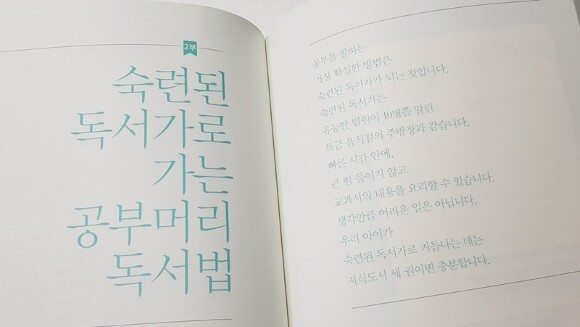 2부
숙련된
독서가로
가는
공부머리
독서법
공부를 잘하는
가장 확실한 방법은
숙련된 독서가가 되는 것입니다.
숙련된 독서가는
유능한 팀원이 10명쯤 딸린
특급 음식점의 주방장과 같습니다.
빠른 시간 안에,
큰 힘 들이지 않고
교과서의 내용을 요리할 수 있습니다.
생각만큼 어려운 일은 아닙니다.
우리 아이가
숙련된 독서가로 거듭나는 데는
지식도서 세 권이면 충분합니다.